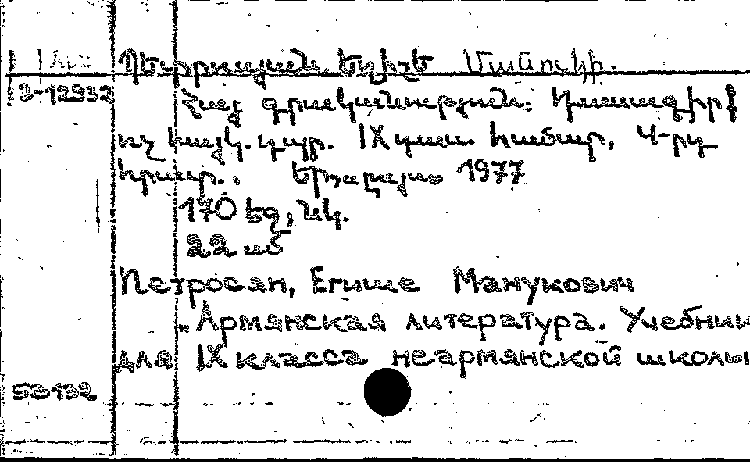 Պետրոսյան Եղիշե Մանուկի.
3-12932
Հայ գրականություն: Դասագիրք
ոչ հայկ. դպր. IX դաս. համար, 4-րդ
հրատ. : Երևան, 1977
170 էջ, նկ.
22 սմ
Петросян, Егише Манукович
„Армянская литература. Учебник
для IX класса неармянской школы
53132